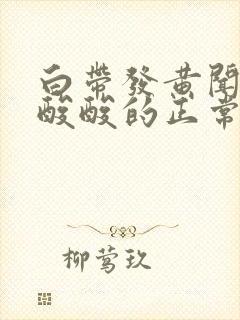 白帶發黃聞
酸酸的正常
柳莺玖